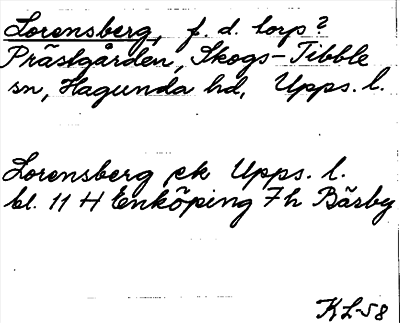 Lorensberg, f. d. torp?
Prästgården, Skogs-Tibble
sn, Hagunda hd, Upps. l.
Lorensberg ek Upps. l.
bl. 11 H Enköping 7h Bärby
KL-58